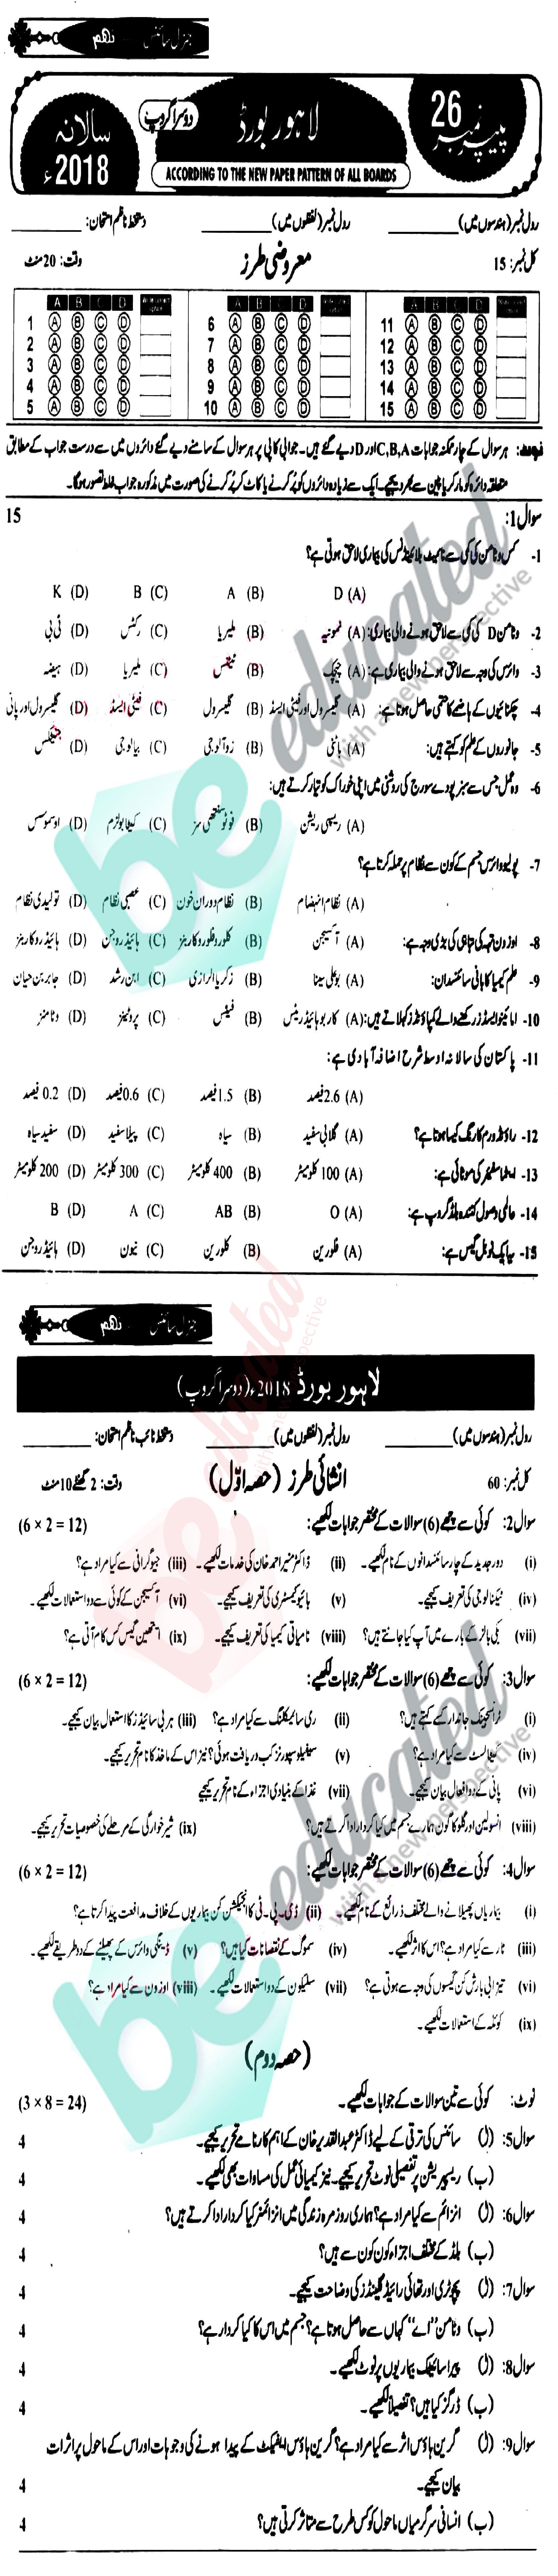 جنرل سائنس نہم
پیپر نمبر 26
لاہور بورڈ
دوسرا گروپ
سالانہ 2018ء
ACCORDING TO THE NEW PAPER PATTERN OF ALL BOARDS
رول نمبر (ہندسوں میں) ________ رول نمبر (لفظوں میں) ________ دستخط ناظم امتحان: ________
کل نمبر: 15 معروضی طرز وقت: 20 منٹ
A B C D A B C D A B C D
1 A B C D 6 A B C D 11 A B C D
2 A B C D 7 A B C D 12 A B C D
3 A B C D 8 A B C D 13 A B C D
4 A B C D 9 A B C D 14 A B C D
5 A B C D 10 A B C D 15 A B C D
نوٹ: ہر سوال کے چار ممکنہ جوابات C,B,A اور D دیے گئے ہیں۔ جوابی کاپی پر ہر سوال کے سامنے دیے گئے دائروں میں سے درست جواب کے مطابق
متعلقہ دائرہ کو مارکر یا پین سے بھر دیجیے۔ ایک سے زیادہ دائروں کو پُر کرنے یا کاٹ کر پُر کرنے کی صورت میں مذکورہ جواب غلط تصور ہوگا۔
سوال 1: 15
1- کس وٹامن کی کمی سے نائیٹ بلائینڈنس کی بیماری لاحق ہوتی ہے؟
(A) D (B) A (C) B (D) K
2- وٹامن D کی کمی سے لاحق ہونے والی بیماری: (A) نمونیہ (B) ملیریا (C) رکٹس (D) ٹی بی
3- وائرس کی وجہ سے لاحق ہونے والی بیماری ہے: (A) چیچک (B) ٹیٹنس (C) ملیریا (D) ہیضہ
4- چکنائیوں کے ہاضمے کا حتمی حاصل ہوتا ہے: (A) گلیسرول اور فیٹی ایسڈ (B) گلیسرول (C) فیٹی ایسڈ (D) گلیسرول اور پانی
5- جانوروں کے علم کو کہتے ہیں: (A) باٹنی (B) زوآلوجی (C) بیالوجی (D) جینیٹکس
6- وہ عمل جس سے سبز پودے سورج کی روشنی میں اپنی خوراک کو تیار کرتے ہیں:
(A) ریسپی ریشن (B) فوٹو سنتھی سز (C) کیٹابولزم (D) اوسموسس
7- پولیو وائرس جسم کے کون سے نظام پر حملہ کرتا ہے؟
(A) نظام انہضام (B) نظام دوران خون (C) عصبی نظام (D) تولیدی نظام
8- اوزون تہہ کی تباہی کی بڑی وجہ ہے: (A) آکسیجن (B) کلوروفلوروکاربنز (C) ہائیڈروجن (D) ہائیڈروکاربنز
9- علم کیمیا کا بانی سائنسدان: (A) بوعلی سینا (B) زکریا الرازی (C) ابن رشد (D) جابر بن حیان
10- امائینو ایسڈز رکھنے والے کمپاؤنڈز کہلاتے ہیں: (A) کاربوہائیڈریٹس (B) فیٹس (C) پروٹینز (D) وٹامنز
11- پاکستان کی سالانہ اوسط شرح اضافہ آبادی ہے:
(A) 2.6 فیصد (B) 1.5 فیصد (C) 0.6 فیصد (D) 0.2 فیصد
12- راؤنڈ ورم کا رنگ کیسا ہوتا ہے؟ (A) گلابی سفید (B) سیاہ (C) پیلا سفید (D) سفید سیاہ
13- ایٹماسفیئر کی موٹائی ہے: (A) 100 کلومیٹر (B) 400 کلومیٹر (C) 300 کلومیٹر (D) 200 کلومیٹر
14- عالمی وصول کنندہ بلڈ گروپ ہے: (A) O (B) AB (C) A (D) B
15- یہ ایک نوبل گیس ہے: (A) فلورین (B) کلورین (C) نیون (D) ہائیڈروجن
جنرل سائنس نہم
لاہور بورڈ 2018ء (دوسرا گروپ)
رول نمبر (ہندسوں میں) ________ رول نمبر (لفظوں میں) ________ دستخط نائب ناظم امتحان: ________
کل نمبر: 60 انشائی طرز (حصہ اوّل) وقت: 2 گھنٹے 10 منٹ
سوال 2: کوئی سے چھے (6) سوالات کے مختصر جوابات لکھیے: (6 × 2 = 12)
(i) دور جدید کے چار سائنسدانوں کے نام لکھیے۔ (ii) ڈاکٹر منیر احمد خان کی خدمات لکھیے۔ (iii) جیوگرافی سے کیا مراد ہے؟
(iv) ٹیکنالوجی کی تعریف کیجیے۔ (v) بائیو کیمسٹری کی تعریف کیجیے۔ (vi) آکسیجن کے کوئی سے دو استعمالات لکھیے۔
(vii) بکی بالز کے بارے میں آپ کیا جانتے ہیں؟ (viii) نامیاتی کیمیا کی تعریف کیجیے۔ (ix) ایتھین گیس کس کام آتی ہے؟
سوال 3: کوئی سے چھے (6) سوالات کے مختصر جوابات لکھیے: (6 × 2 = 12)
(i) ٹرانسجینک جاندار کسے کہتے ہیں؟ (ii) ری سائیکلنگ سے کیا مراد ہے؟ (iii) ہربی سائیڈز کا استعمال بیان کیجیے۔
(iv) کیٹالسٹ سے کیا مراد ہے؟ (v) سیفیلوسپورنز کب دریافت ہوئی؟ نیز اس کے ماخذ کا نام تحریر کیجیے۔
(vi) پانی کے دو افعال بیان کیجیے۔ (vii) غذا کے بنیادی اجزاء کے نام تحریر کیجیے
(viii) انسولین اور گلوکاگون ہمارے جسم میں کیا کردار ادا کرتے ہیں؟ (ix) شیر خوارگی کے مرحلے کی خصوصیات تحریر کیجیے۔
سوال 4: کوئی سے چھے (6) سوالات کے مختصر جوابات لکھیے: (6 × 2 = 12)
(i) بیماریاں پھیلانے والے مختلف ذرائع کے نام لکھیے۔ (ii) ڈی۔پی۔ٹی کا انجیکشن کن بیماریوں کے خلاف مدافعت پیدا کرتا ہے؟
(iii) تار سے کیا مراد ہے؟ اس کا اثر لکھیے۔ (iv) سموگ کے نقصانات کیا ہیں؟ (v) ڈینگی وائرس کے پھیلنے کے دو طریقے لکھیے۔
(vi) تیزابی بارش کن گیسوں کی وجہ سے ہوتی ہے؟ (vii) سلیکون کے دو استعمالات لکھیے۔ (viii) اوزون سے کیا مراد ہے؟
(ix) کوئلہ کے استعمالات لکھیے۔
(حصہ دوم)
نوٹ: کوئی سے تین سوالات کے جوابات لکھیے۔ (3 × 8 = 24)
سوال 5: (ا) سائنس کی ترقی کے لیے ڈاکٹر عبدالقدیر خان کے اہم کارنامے تحریر کیجیے۔ 4
(ب) ریسپریشن پر تفصیلی نوٹ تحریر کیجیے۔ نیز کیمیائی عمل کی مساوات بھی لکھیے۔ 4
سوال 6: (ا) انزائم سے کیا مراد ہے؟ ہماری روزمرہ زندگی میں انزائمز کیا کردار ادا کرتے ہیں؟ 4
(ب) بلڈ کے مختلف اجزاء کون کون سے ہیں؟ 4
سوال 7: (ا) پچوٹری اور تھائی رائیڈ گلینڈز کی وضاحت کیجیے۔ 4
(ب) وٹامن "اے" کہاں سے حاصل ہوتا ہے؟ جسم میں اس کا کیا کردار ہے؟ 4
سوال 8: (ا) پیراسائیٹک بیماریوں پر نوٹ لکھیے۔ 4
(ب) ڈرگز کیا ہیں؟ تفصیلاً لکھیے۔ 4
سوال 9: (ا) گرین ہاؤس اثر سے کیا مراد ہے؟ گرین ہاؤس ایفیکٹ کے پیدا ہونے کی وجوہات اور اس کے ماحول پر اثرات
بیان کیجیے۔ 4
(ب) انسانی سرگرمیاں ماحول کو کس طرح سے متاثر کرتی ہیں؟ 4
be educated
with a new perspective
be educated
be educated
with a new perspective